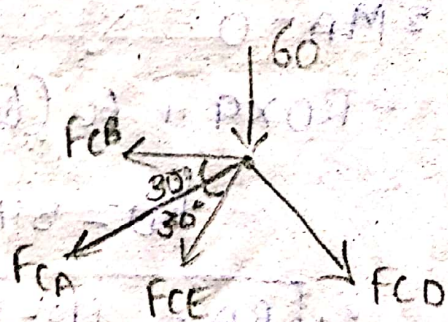 60
FCB
30°
30°
FCA
FCE
FCD